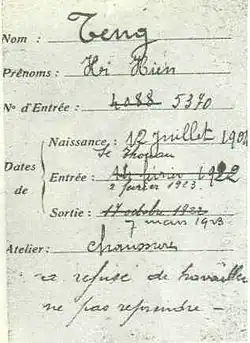 Nom : Teng
Prénoms : Hi Hien
N° d'Entrée : 4088 5370
Naissance : 12 juillet 190
Dates de
Entrée : 14 février 1922
2 février 1923.
Sortie : 17 octobre 1922
7 mars 1923
Atelier : Chaussure
a refusé de travailler
ne pas reprendre -